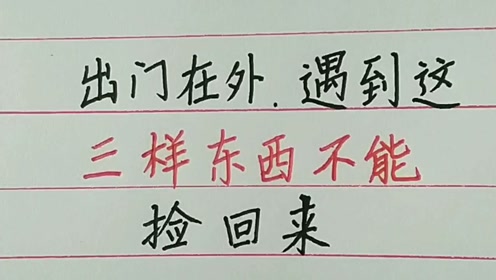 出门在外.遇到这
三样东西不能
捡回来